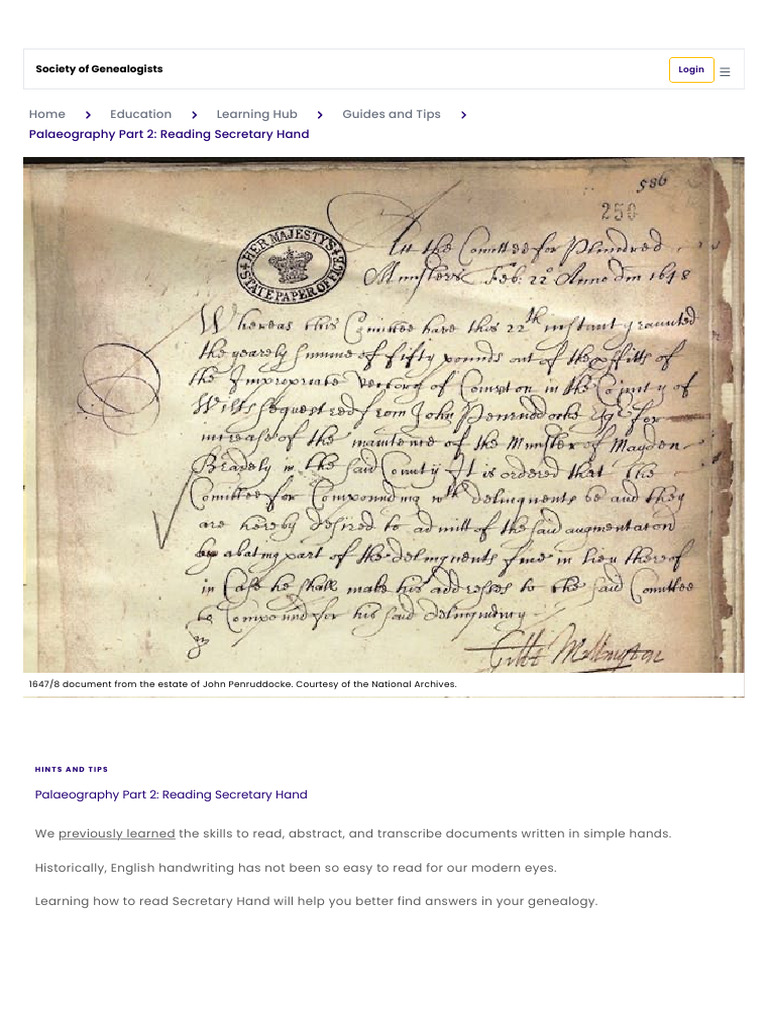 Society of Genealogists
Login
Home > Education > Learning Hub > Guides and Tips >
Palaeography Part 2: Reading Secretary Hand
586
250
HER MAJESTYS STATE PAPER OFFICE
Att the Comittee for Plundred
Ministers Feb: 22° Anno Dm 1648
Whereas this Comittee have this 22th instant graunted
the yearely summe of fifty pounds out of the pffitts of
the Impropriate Rectory of Compton in the County of
Wilts sequestred from John Penruddocke Esqr for
increase of the maintence of the Minister of Mayden
Bradely in the said County It is ordered that the
Comittee for Compounding wth delinquents be and they
are hereby desired to admitt of the said augmentacon
by abating part of the delinquents fine in lieu thereof
in Case he shall make his addresses to the said Comittee
to Compound for his said delinquency
Gilbt Millington
1647/8 document from the estate of John Penruddocke. Courtesy of the National Archives.
HINTS AND TIPS
Palaeography Part 2: Reading Secretary Hand
We previously learned the skills to read, abstract, and transcribe documents written in simple hands.
Historically, English handwriting has not been so easy to read for our modern eyes.
Learning how to read Secretary Hand will help you better find answers in your genealogy.